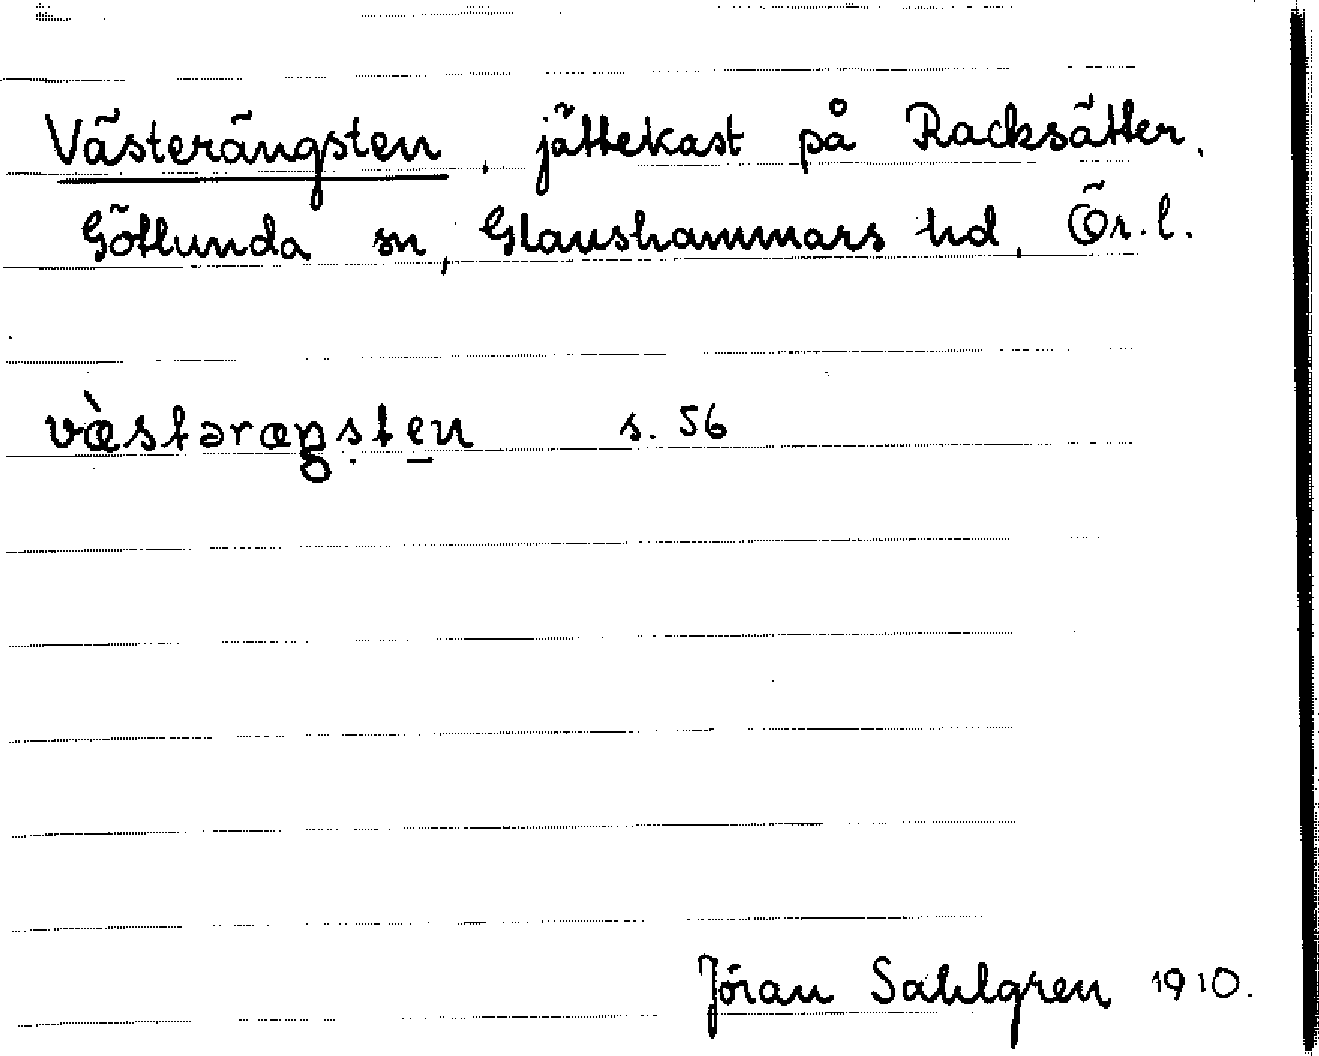 Västerängsten, jättekast på Racksätter,
Götlunda sn, Glanshammars hd, Ör. l.
væ̀stəræŋsten s. 56
Jöran Sahlgren 1910.